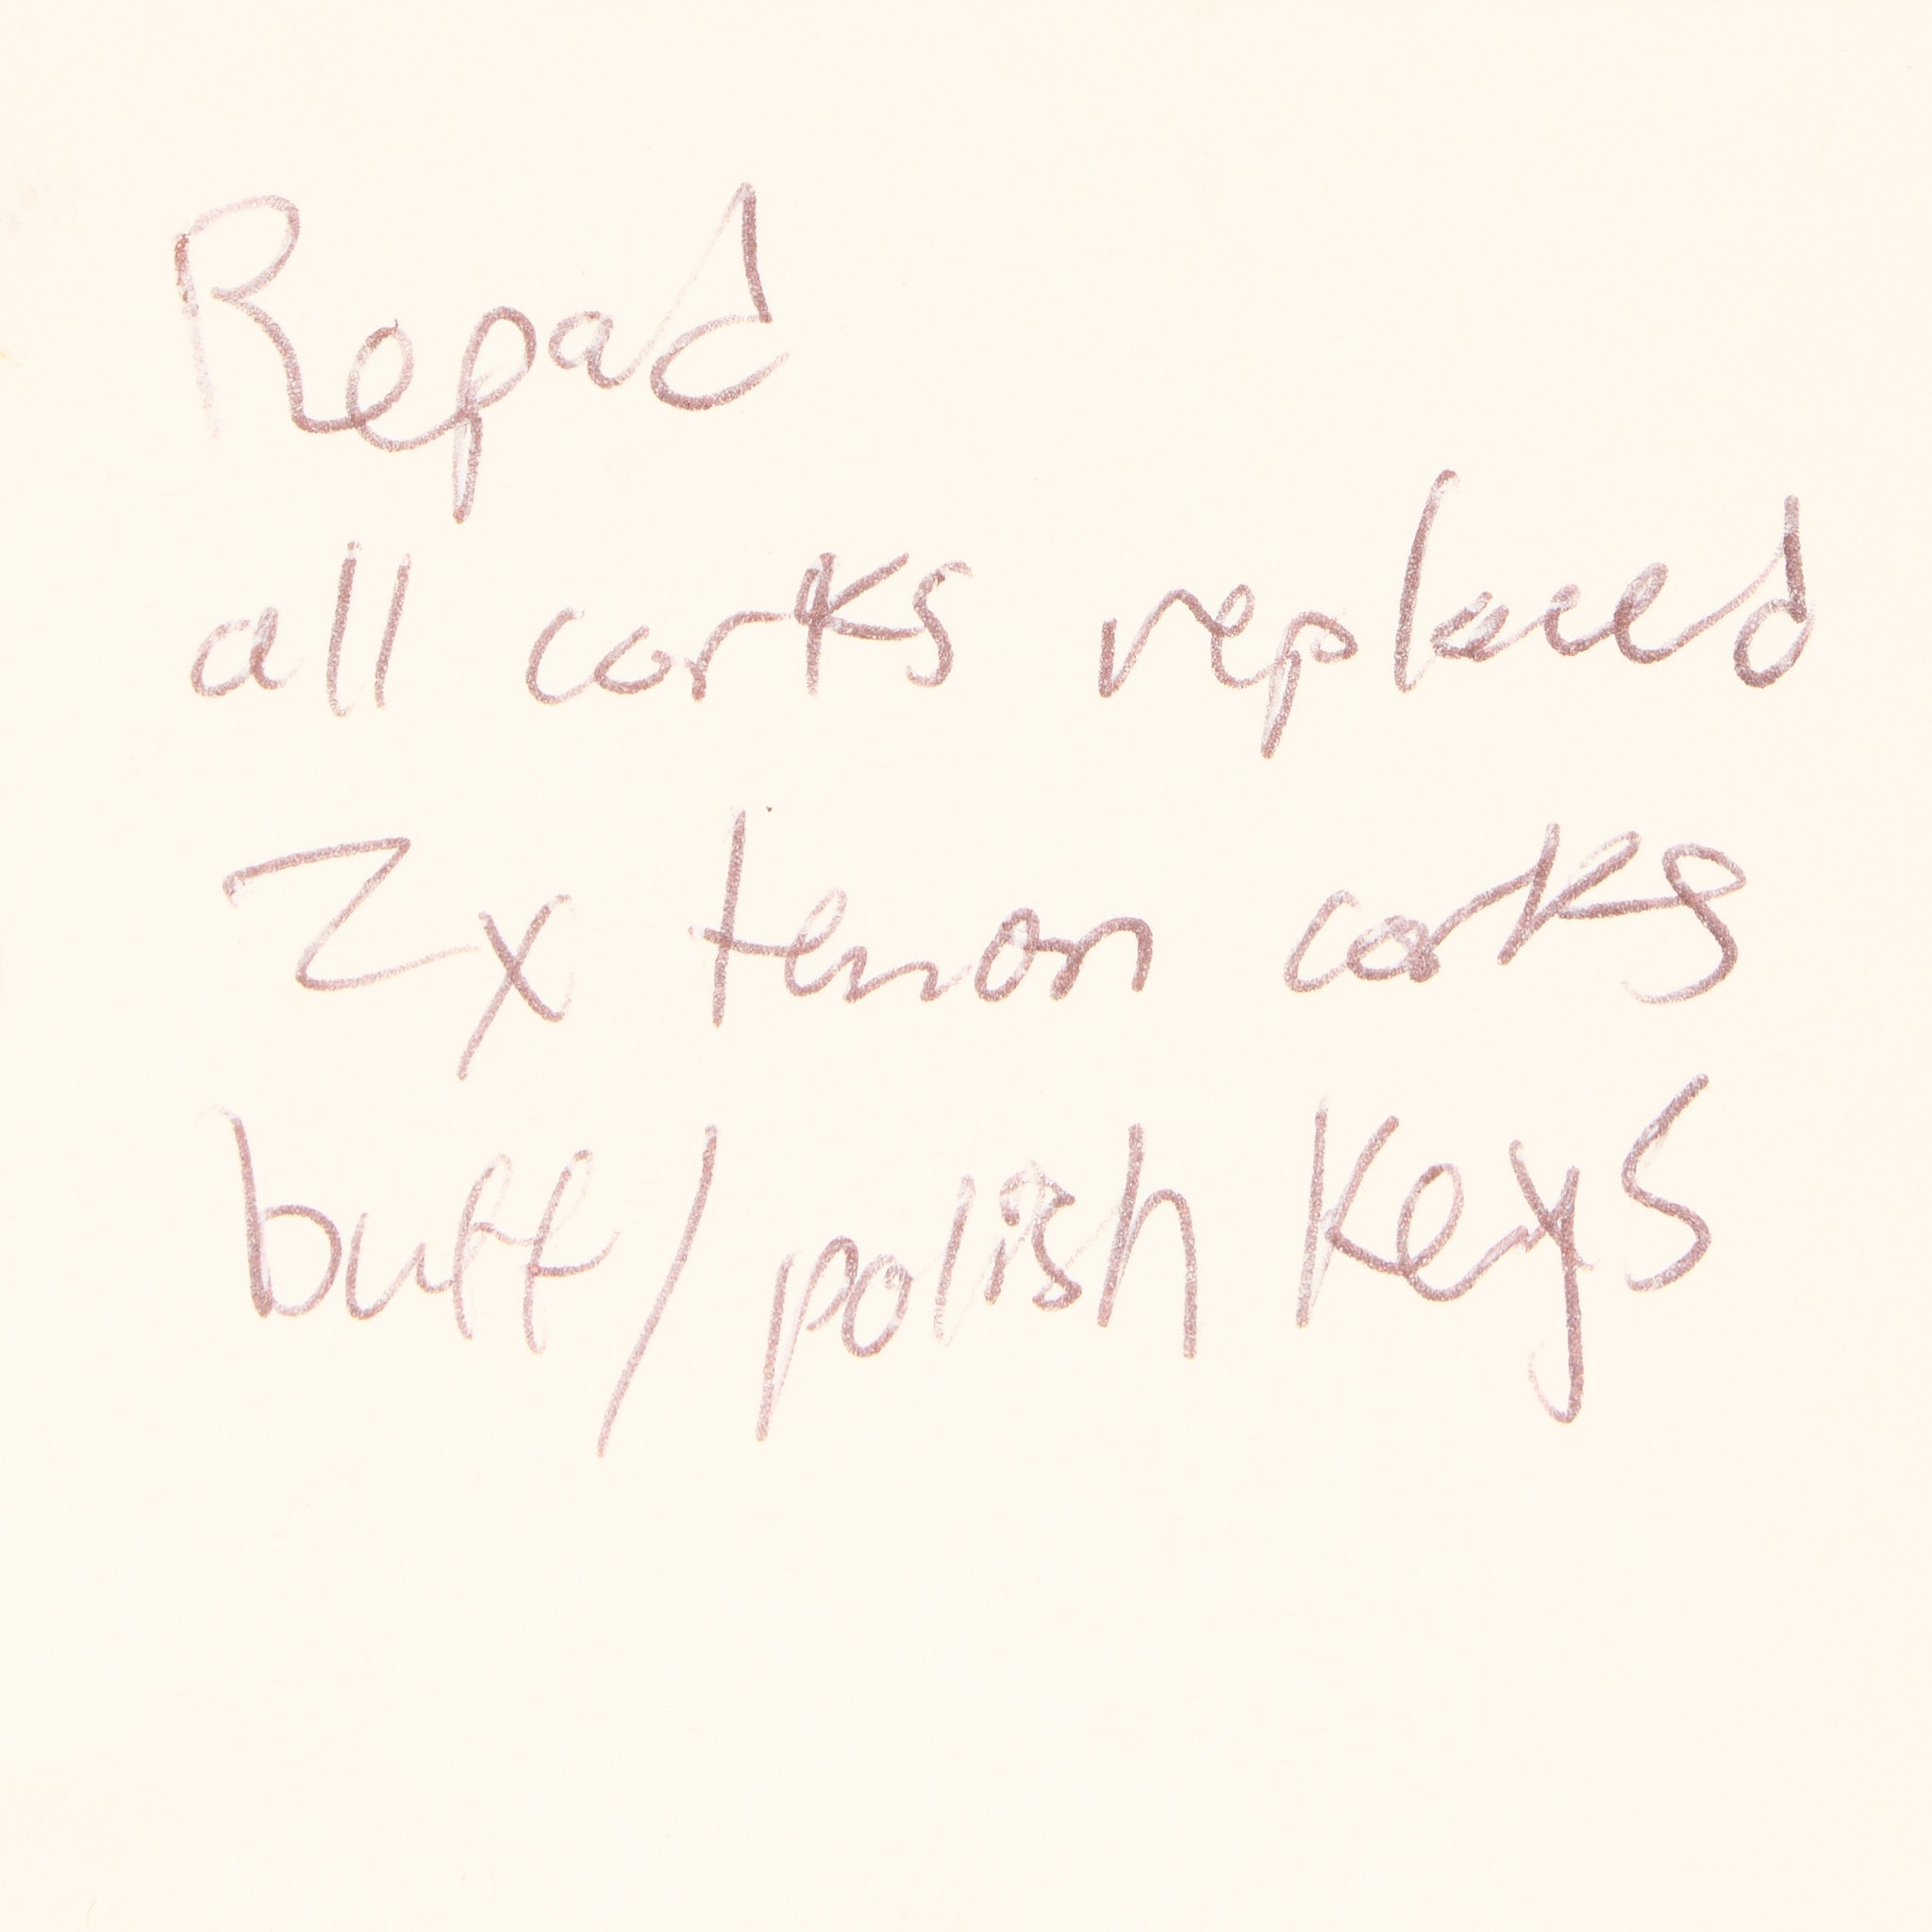 Repad
all corks replaced
2x tenon corks
buff/polish keys